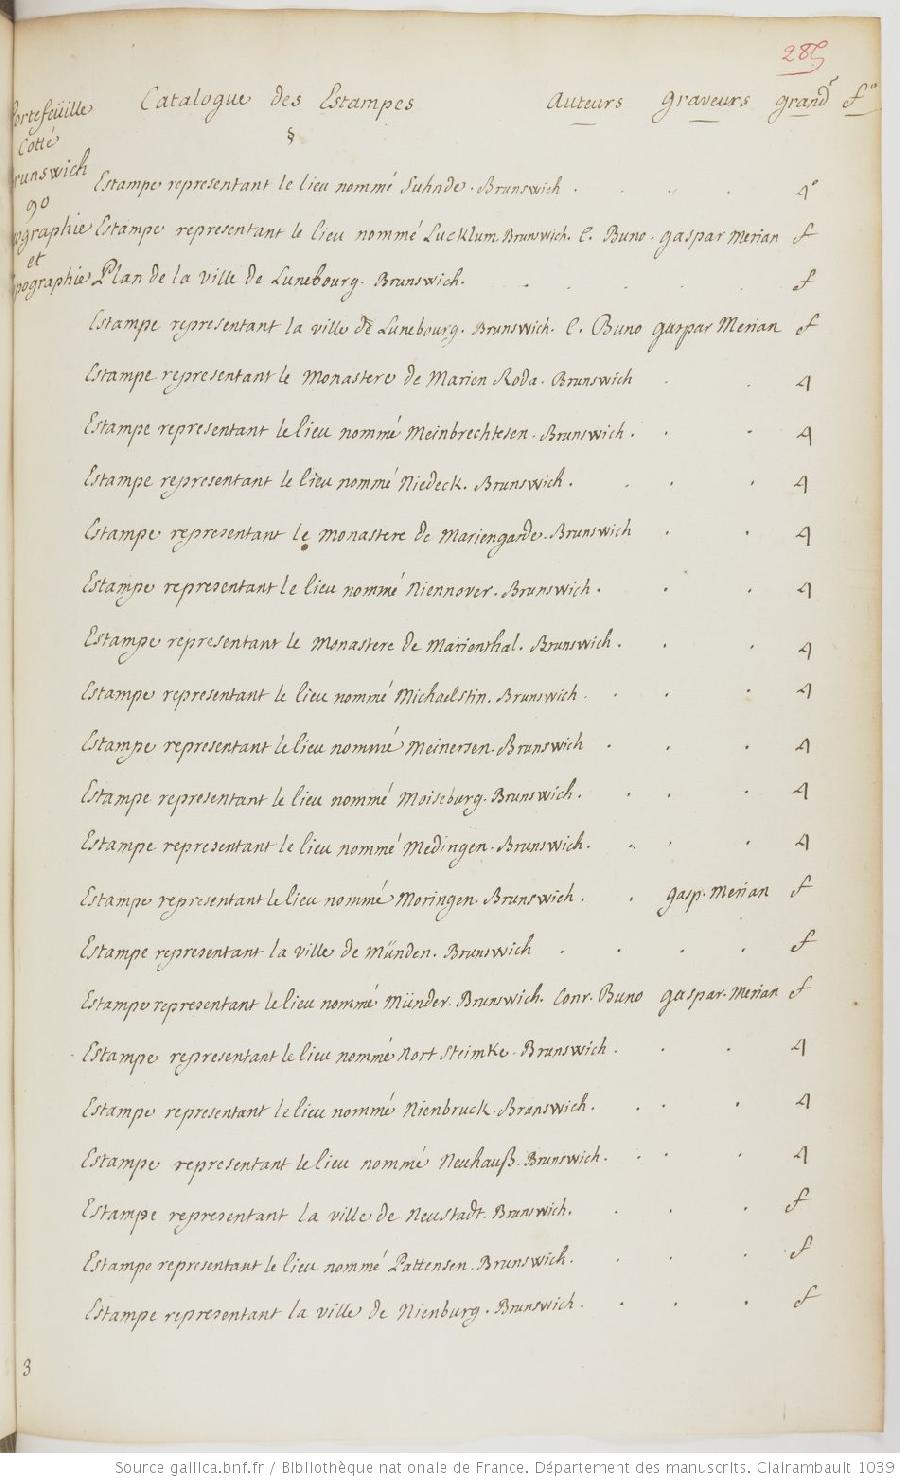 285
Portefeüille Catalogue des Estampes Auteurs Graveurs grandr fo
Cotté §
Brunswich Estampe representant le lieu nommé Suhnde. Brunswich . . . . 4°
90
ographie Estampe representant le lieu nommé Lucklum. Brunswich. C. Buno. gaspar Merian f
et
pographie Plan de la ville de Lunebourg. Brunswich. . . . . . f
Estampe representant la ville de Lunebourg. Brunswich. C. Buno gaspar Merian f
Estampe representant le Monastere de Marien Roda. Brunswich . . 4
Estampe representant le lieu nommé Meinbrechtesen. Brunswich. . . 4
Estampe representant le lieu nommé Niedeck. Brunswich. . . . 4
Estampe representant le monastere de Mariengarde. Brunswich . . 4
Estampe representant le lieu nommé Niennover. Brunswich. . . 4
Estampe representant le Monastere de Marienthal. Brunswich. . . 4
Estampe representant le lieu nommé Michaelstin. Brunswich . . . . 4
Estampe representant le lieu nommé Meinersen. Brunswich . . . 4
Estampe representant le lieu nommé Moiseburg. Brunswich. . . . 4
Estampe representant le lieu nommé Medingen. Brunswich. . . . 4
Estampe representant le lieu nommé Moringen. Brunswich . . gasp. Merian f
Estampe representant la ville de Münden. Brunswich . . . . f
Estampe representant le lieu nommé Münder. Brunswich. Conr. Buno gaspar. Merian f
Estampe representant le lieu nommé Nort Steimke. Brunswich . . . 4
Estampe representant le lieu nommé Nienbruck. Brunswich. . . . 4
Estampe representant le lieu nommé Neuhauß. Brunswich. . . . 4
Estampe representant la ville de Neustadt. Brunswich. . . . f
Estampe representant le lieu nommé Pattensen. Brunswich. . . . f
Estampe representant la ville de Nienburg. Brunswich . . . . f
3
Source gallica.bnf.fr / Bibliothèque nationale de France. Département des manuscrits. Clairambault 1039